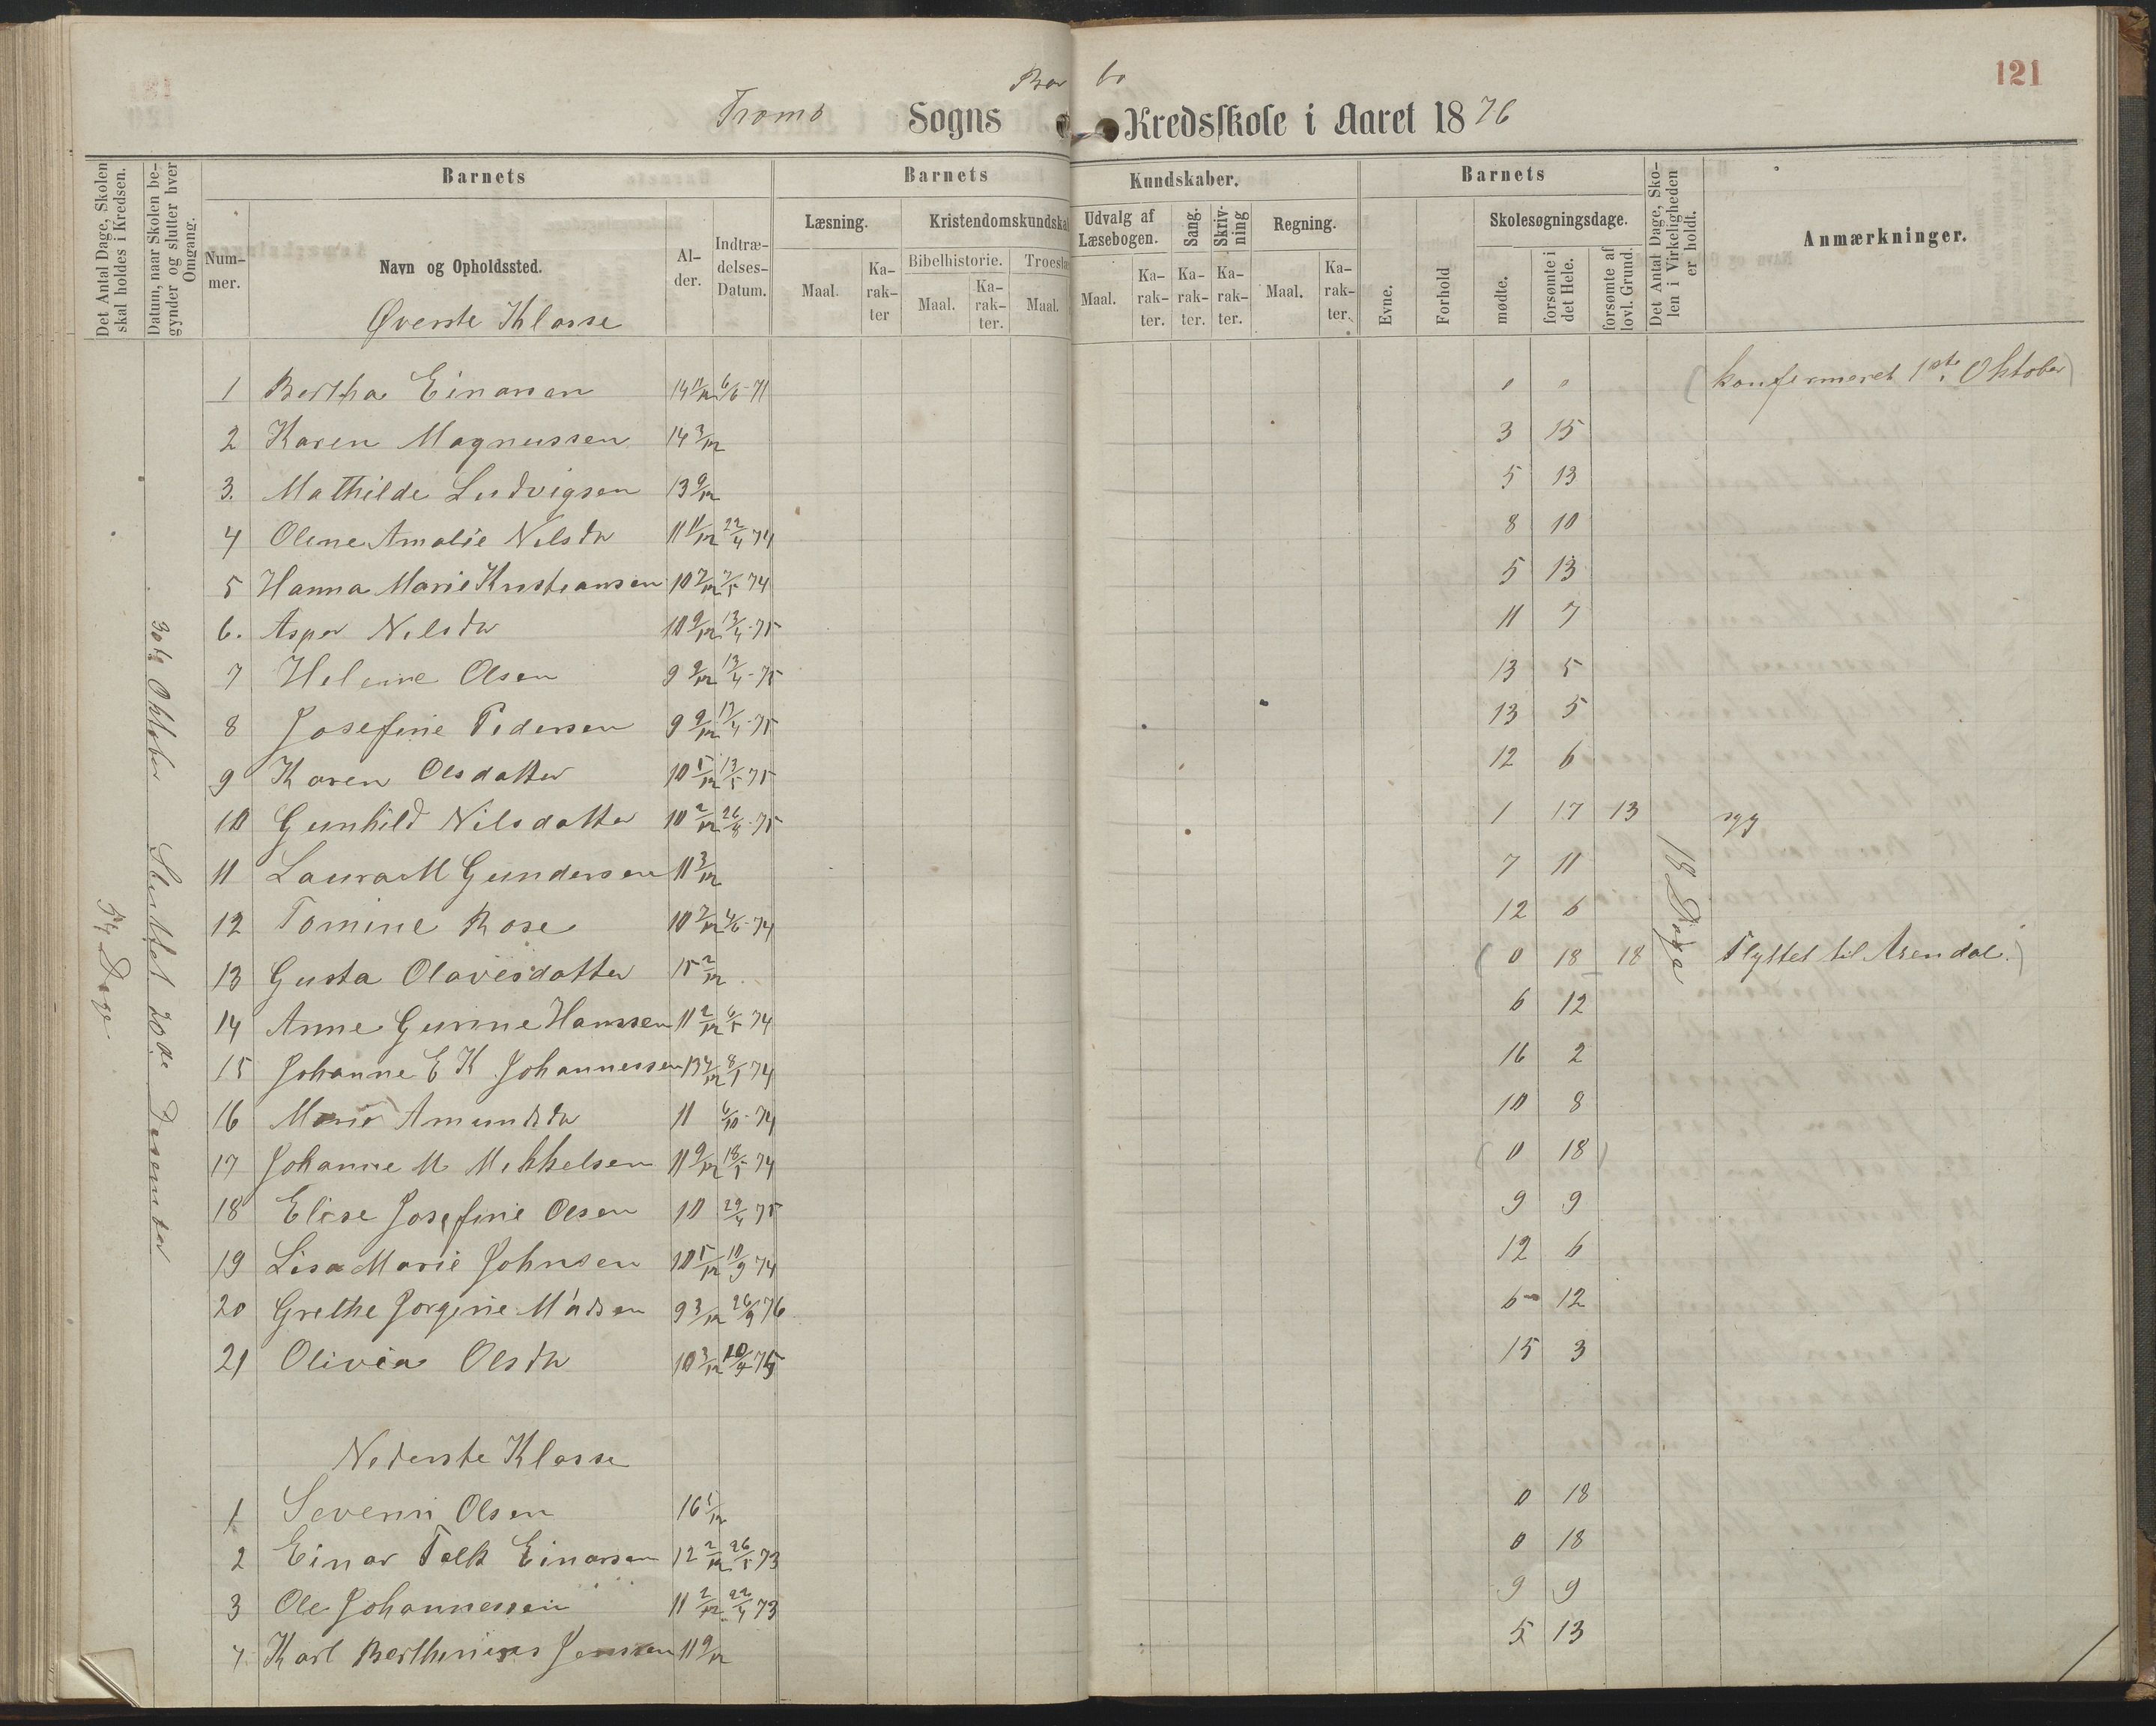 121
Bor bo
Tromø Sogns Kredsskole i Aaret 1876
Det Antal Dage, Skolen skal holdes i Kredsen.
Datum, naar Skolen begynder og slutter hver Omgang.
Barnets
Nummer.
Navn og Opholdssted.
Alder.
Indtrædelses-Datum.
Barnets Kundskaber.
Læsning.
Maal. Karakter
Kristendomskundska
Bibelhistorie. Troesl
Maal. Karakter. Maal.
Udvalg af Læsebogen.
Maal. Karakter.
Sang.
Karakter.
Skrivning
Karakter.
Regning.
Maal. Karakter.
Barnets
Evne.
Forhold
Skolesøgningsdage.
mødte.
forsømte i det Hele.
forsømte af lovl. Grund.
Det Antal Dage, Skolen i Virkeligheden er holdt.
Anmærkninger.
Øverste Klasse
1 Bertha Einarsen 14 11/12 6/6 71 0 0 konfirmeret 1ste Oktober)
2 Karen Magnussen 14 3/12 3 15
3. Mathilde Ludvigsen 13 9/12 5 13
4 Oline Amalie Nilsdtr 11 11/12 22/4 74 8 10
5 Hanna Marie Kristiansen 10 7/12 7/5 74 5 13
6. Asper Nilsdtr 10 9/12 13/4-75 11 7
7 Helene Olsen 9 9/12 13/4-75 13 5
8 Josefine Pedersen 9 9/12 17/4-75 13 5
9 Karen Olsdatter 10 5/12 13/5-75 12 6
10 Gunhild Nilsdatter 10 2/12 26/8-75 1 17 13 syg
11 Laura M Gundersen 11 3/12 7 11
12 Tomine Rose 10 7/12 4/6-74 12 6
13 Gusta Olavesdatter 15 2/12 (0 18 18 Flyttet til Arendal.)
14 Anne Gurine Hanssen 11 2/12 6/5 74 6 12
15 Johanne E K Johannessen 13 4/12 8/1 74 16 2
16 Marie Amundsdtr 11 6/10-74 10 8
17 Johanne M Mikkelsen 11 9/12 18/5 74 (0 18)
18 Elise Josefine Olsen 10 29/4 75 9 9
19 Lisa Marie Johnsen 10 5/12 10/9 74 12 6
20 Grethe Jorgine Madsen 9 3/12 26/9 76 6 12
21 Olivia Olsdtr 10 3/12 10/4 75 15 3
Nederste Klasse
1 Severin Olsen 16 5/12 0 18
2 Einar Falk Einarsen 12 2/12 26/5 73 0 18
3 Ole Johannessen 11 2/12 22/4 73 9 9
4 Karl Berthinius Jensen 11 9/12 5 13
30te Oktober Sluttet 20de Desember
Dage
18 Dage